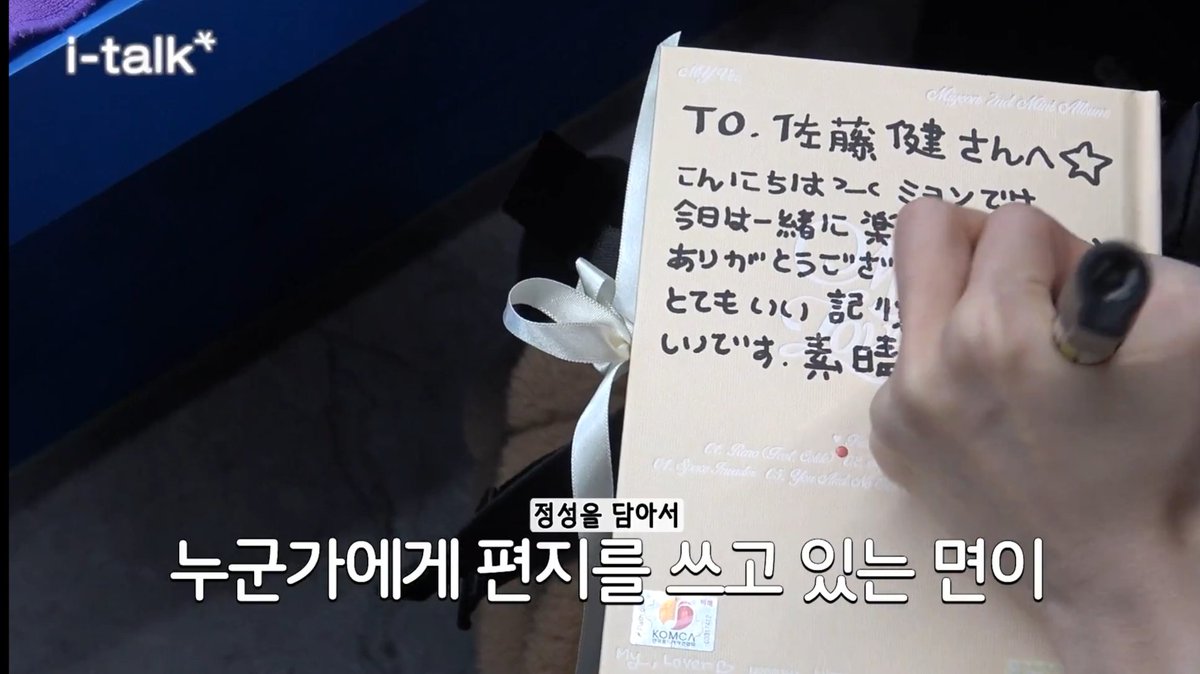 i-talk*
MY, Lov
Miyeon 2nd Mini Album
TO. 佐藤 健 さんへ☆
こんにちは〜 ミヨンです
今日は一緒に 楽
ありがとうござ
とてもいい 記憶
いいです. 素 晴
Space Invader 03. You And No
정성을 담아서
누군가에게 편지를 쓰고 있는 면이
KOMCA
My, Lover